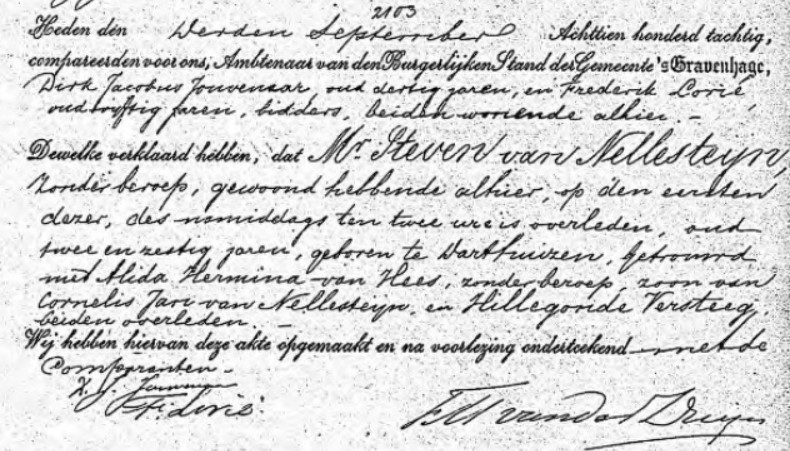 2103
Heden den derden September Achttien honderd tachtig,
compareerden voor ons, Ambtenaar van den Burgerlijken Stand der Gemeente 's Gravenhage,
Dirk Jacobus Jouvenaar, oud dertig jaren, en Frederik Lorié,
oud vyftig jaren, bidders, beiden wonende alhier. –
Dewelke verklaard hebben, dat Mr. Steven van Nellesteyn,
zonder beroep, gewoond hebbende alhier, op den eersten
dezer, des namiddags ten twee ure is overleden, oud
twee en zestig jaren, geboren te Darthuizen, getrouwd
met Alida Hermina van Hees, zonder beroep, zoon van
Cornelis Jan van Nellesteyn, en Hillegonde Versteeg,
beiden overleden. –
Wij hebben hiervan deze akte opgemaakt en na voorlezing onderteekend met de
Comparanten. –
F. Lorié